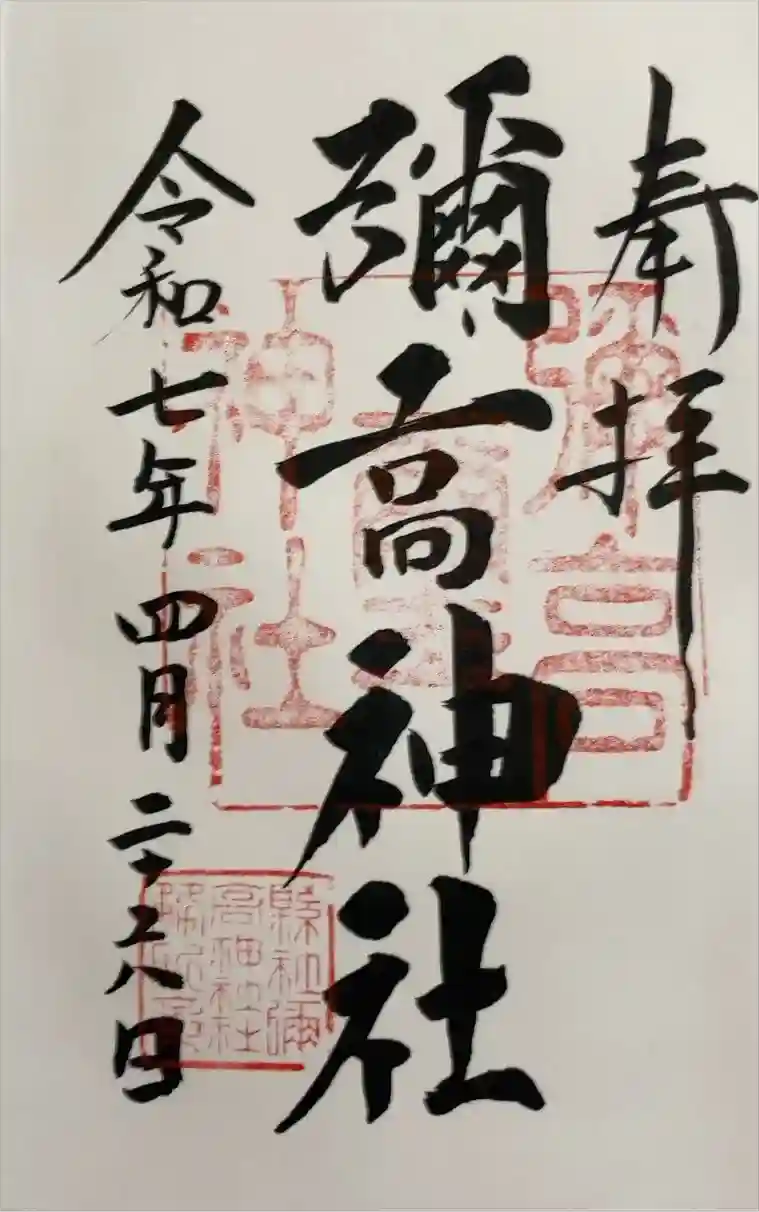 奉拝
彌高神社
令和七年四月二十六日
彌高
神社
縣社彌
高神社
務所